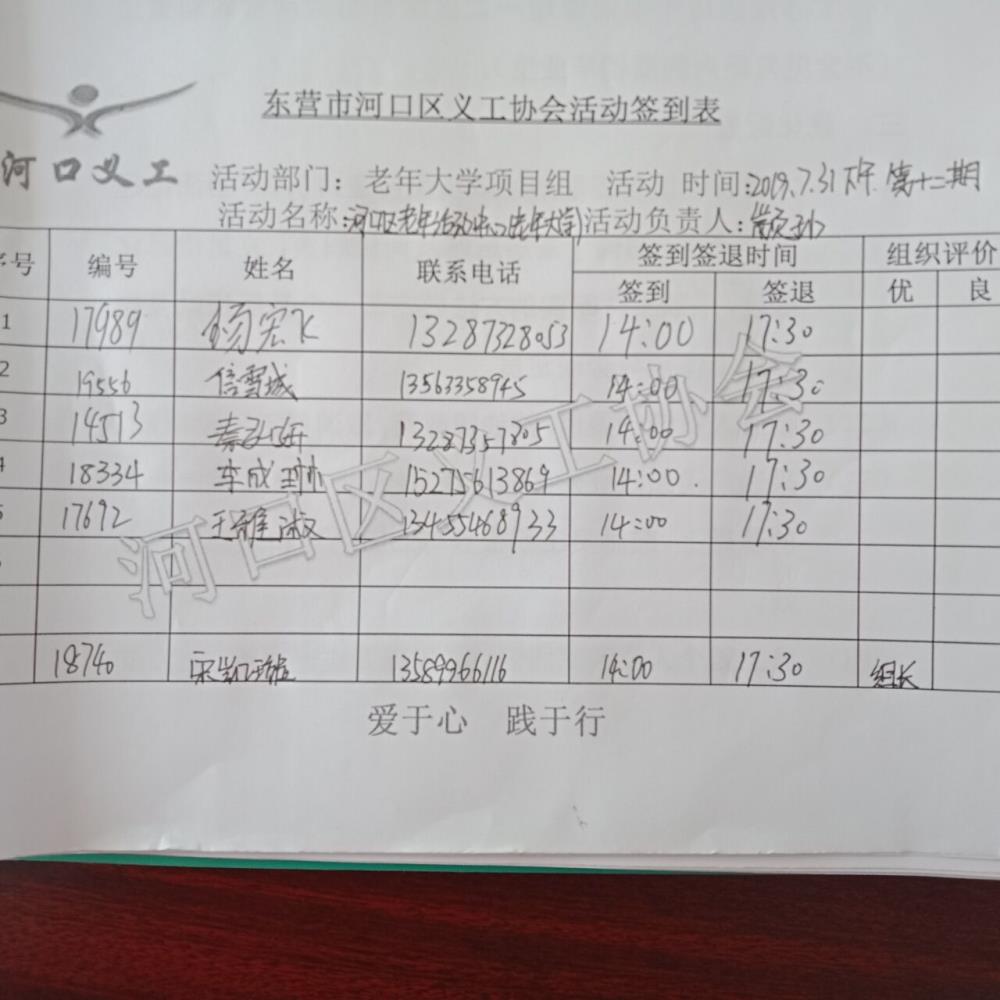 东营市河口区义工协会活动签到表
河口义工
活动部门：老年大学项目组 活动 时间：2019.7.31下午 第十二期
活动名称：河口区老年活动中心(老年大学) 活动负责人：
序号 编号 姓名 联系电话 签到签退时间 组织评价
签到 签退 优 良
1 17989 杨宏飞 13287328053 14:00 17:30
2 19556 信雪城 13563358945 14:00 17:30
3 14513 秦 13287357805 14:00 17:30
4 18334 李成 15275613869 14:00 17:30
5 17692 王雅淑 13455468933 14:00 17:30
18740 宋 13589966116 14:00 17:30 组长
爱于心 践于行
河口区义工协会